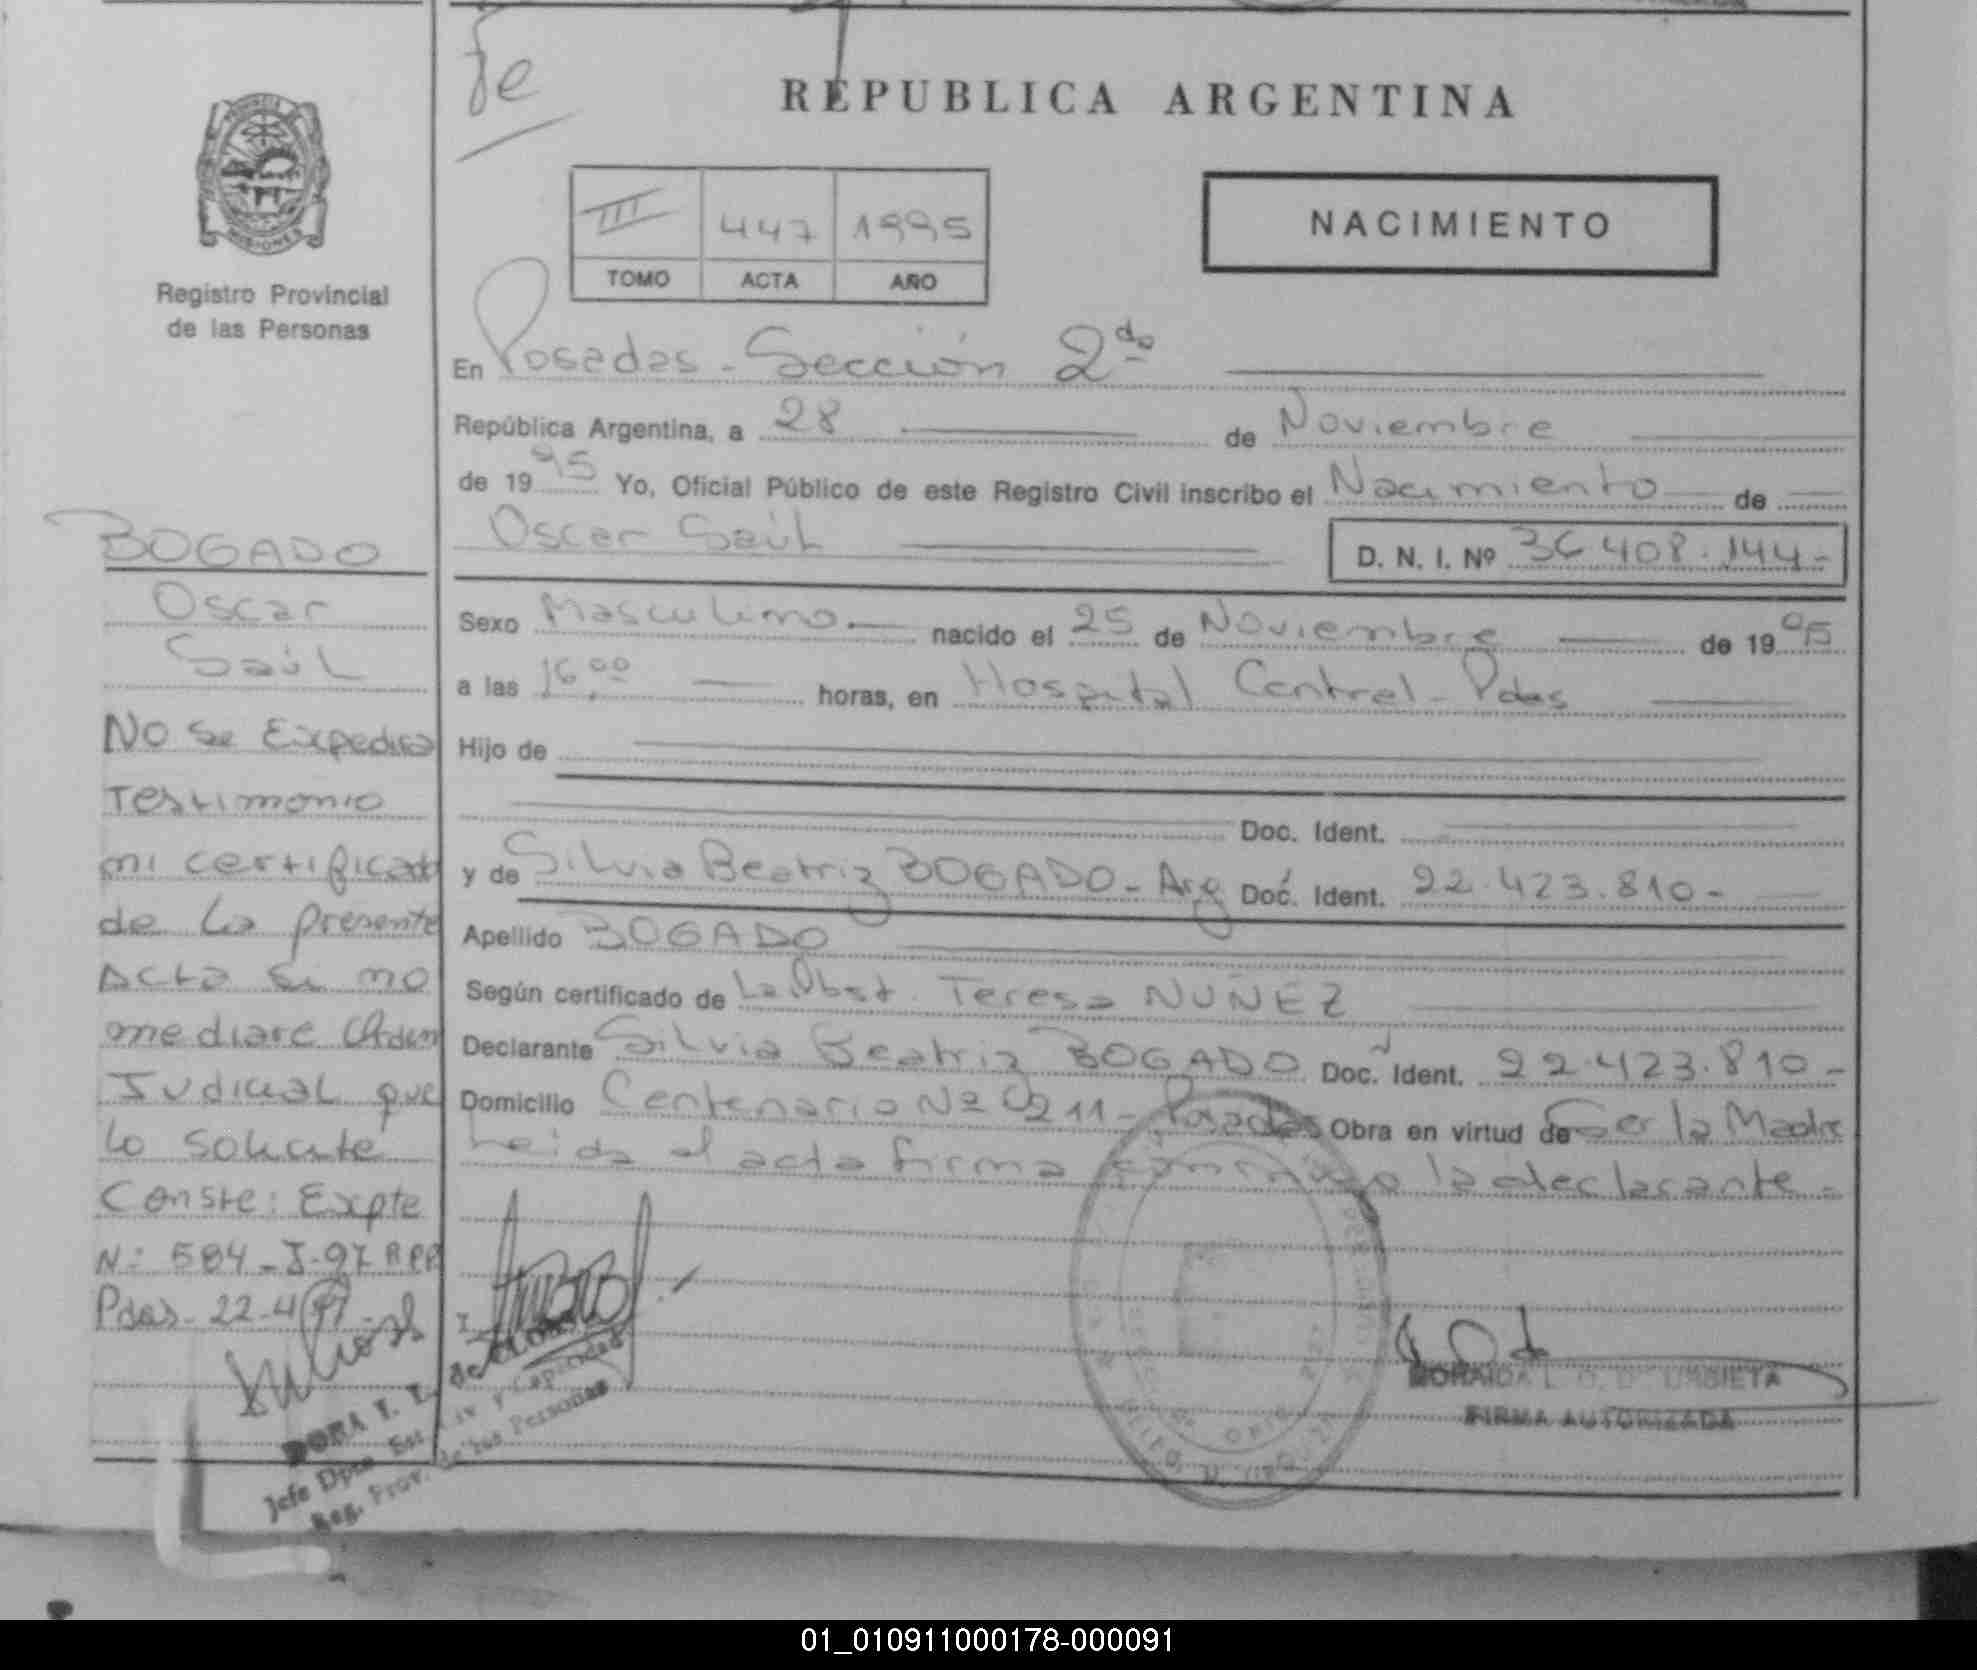 Fe
REPUBLICA ARGENTINA
PROVINCIA
MISIONES
Registro Provincial
de las Personas
III 447 1995
TOMO ACTA AÑO
NACIMIENTO
En Posadas - Sección 2da
República Argentina, a 28 de Noviembre
de 1995 Yo, Oficial Público de este Registro Civil inscribo el Nacimiento de
Oscar Saúl D. N. I. Nº 408.144-
Sexo Masculino nacido el 25 de Noviembre de 1995
a las 16,00 horas, en Hospital Central - Pdas
Hijo de
Doc. Ident.
y de Silvia Beatriz BOGADO - Arg Doc. Ident. 22.423.810-
Apellido BOGADO
Según certificado de La Obst. Teresa NUÑEZ
Declarante Silvia Beatriz BOGADO Doc. Ident. 22.423.810-
Domicilio Centenario Nº 0211 - Posadas Obra en virtud de Ser la Madre
Leida el acta firma conmigo la declarante -
BOGADO
Oscar
Saúl
No se Expedira
Testimonio
ni certificado
de la presente
Acta si no
mediare Orden
Judicial que
lo solicite
Conste: Expte
N: 584-J-97 RPP
Pdas. 22-4-97
DORA T. L. de
Jefe Dpto Est Civ y Capacidad
Reg. Prov. de las Personas
FIRMA AUTORIZADA
01_010911000178-000091